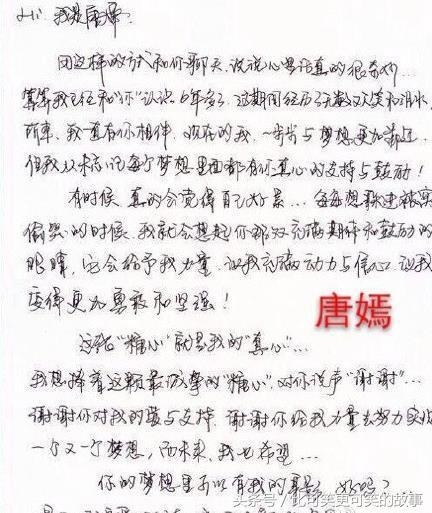 Hi 我是唐嫣.
用这样的方式和你聊天,说说心里话真的很奇妙...
算算我已经和“你”认识6年多了,这期间经历了无数欢笑和泪水,
所幸,我一直有你相伴,现在的我,一步步与梦想更加靠近,
但我从未忘记每个梦想里面都有你真心的支持与鼓励!
有时候,真的会觉得自己好累...每每想躲进被窝
偷哭的时候,我就会想起你那双充满期待和鼓励的
眼睛,它会给予我力量,让我充满动力与信心,让我
变得更加勇敢和坚强!
唐嫣
这颗“糖心”就是我的“真心”...
我想捧着这颗最诚挚的“糖心”,对你说声“谢谢”...
谢谢你对我的爱与支持,谢谢你给我力量去努力实现
一个又一个梦想,而未来,我也希望...
你的梦想里可以有我的身影,好吗?
公众号/比可笑更可笑的故事